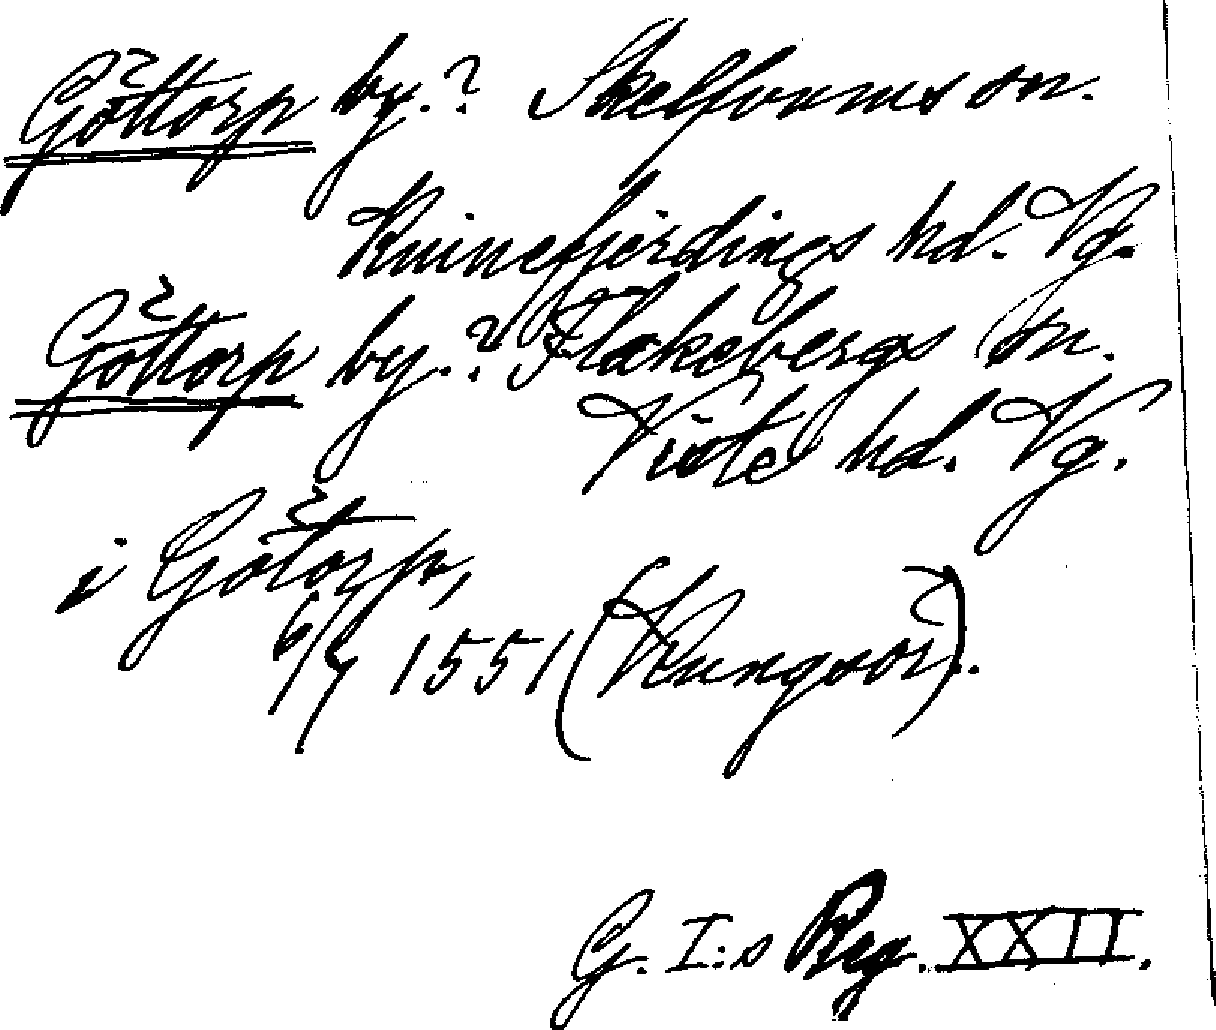 Göttorp by.? Skelfvums sn.
Kinnefjerdings hd. Vg.
Göttorp by.? Flakebergs sn.
Viste hd. Vg.
i Götorp,
6/4 1551 (Kungsör).
G. I:s Reg. XXII.